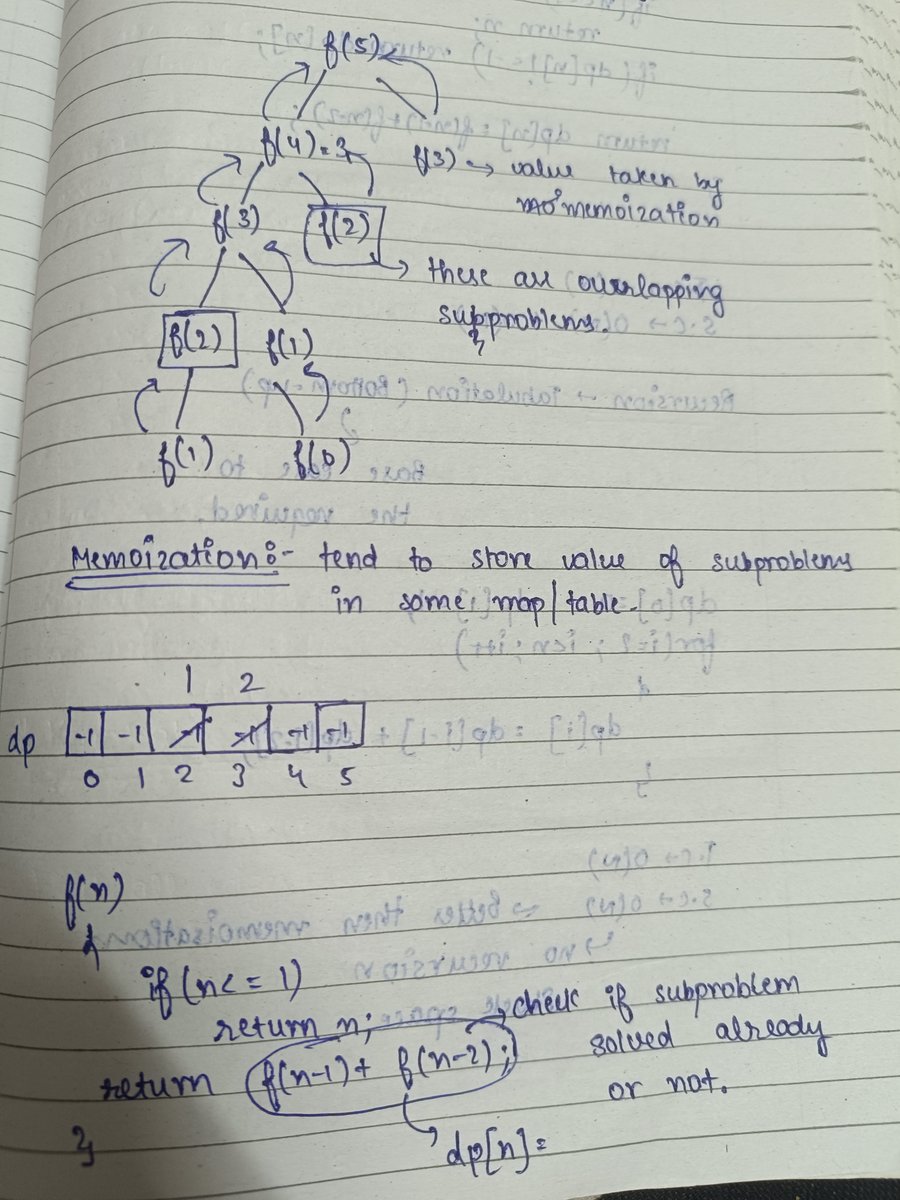 f(5)
f(4)=3 f(3) → value taken by
memoization
f(3) f(2) → these are overlapping
subproblems.
f(2) f(1)
f(1) f(0)
Memoization:- tend to store value of subproblems
in some map/table.
1 2
dp -1 -1 -1 -1 -1 -1
0 1 2 3 4 5
f(n)
{
if(n<=1)
return n; → check if subproblem
return f(n-1)+ f(n-2); solved already
or not.
} dp[n]=